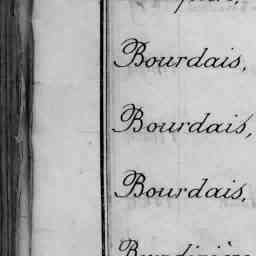 Bourdais,
Bourdais,
Bourdais,